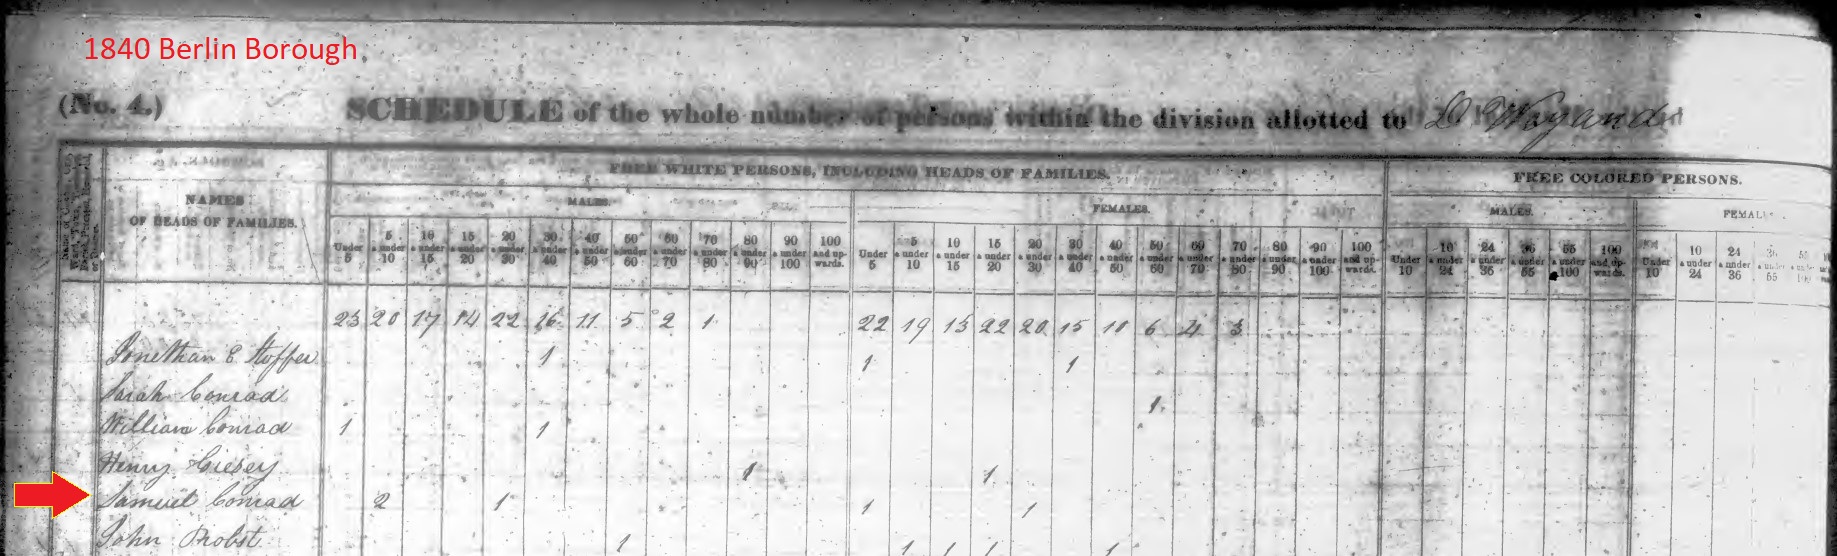 1840 Berlin Borough
(No. 4.) SCHEDULE of the whole number of persons within the division allotted to D Weyand
NAMES OF HEADS OF FAMILIES.
FREE WHITE PERSONS, INCLUDING HEADS OF FAMILIES.
FREE COLORED PERSONS.
MALES. FEMALES. MALES. FEMAL
Under 5 5 & under 10 10 & under 15 15 & under 20 20 & under 30 30 & under 40 40 & under 50 50 & under 60 60 & under 70 70 & under 80 80 & under 90 90 & under 100 100 and upwards.
Under 5 5 & under 10 10 & under 15 15 & under 20 20 & under 30 30 & under 40 40 & under 50 50 & under 60 60 & under 70 70 & under 80 80 & under 90 90 & under 100 100 and upwards.
Under 10 10 & under 24 24 & under 36 36 & under 55 55 & under 100 100 and upwards.
Under 10 10 & under 24 24 & under 36 36 & under 55
23 20 17 14 22 16 11 5 2 1 22 19 13 22 20 15 10 6 4 3
Jonethan E Stoffer 1 1 1
Sarah Conrad 1
William Conrad 1 1
Henry Giesey 1 1
Samuel Conrad 2 1 1 1
John Probst 1 1 1 1 1